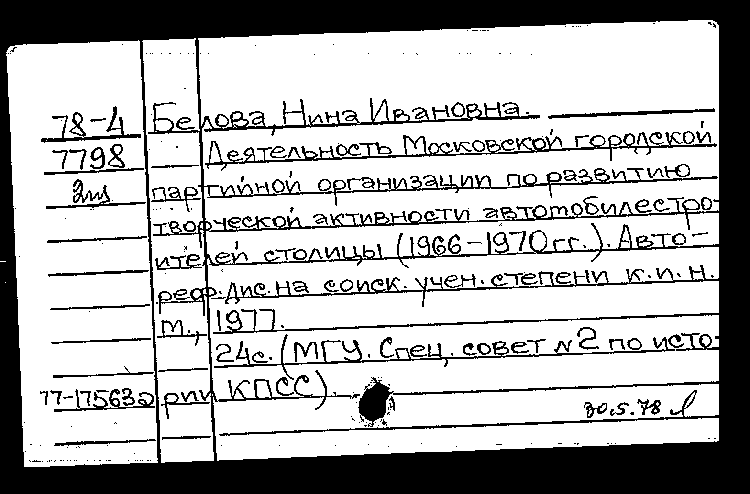 78-4 Белова, Нина Ивановна.
7798 Деятельность Московской городской
2пл партийной организации по развитию
творческой активности автомобилестро-
ителей столицы (1966-1970гг.). Авто-
реф. дис. на соиск. учен. степени к.и.н.
М., 1977.
24с. (МГУ. Спец. совет №2 по исто-
77-17563э рии КПСС).
30.5.78